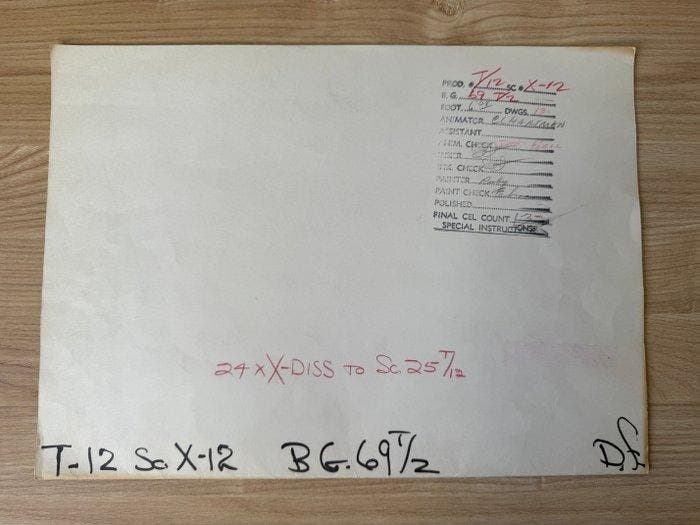 PROD. # T/12 SC # X-12
B. G. 69 T/2
FOOT. DWGS. 13
ANIMATOR C. HARTMAN
ASSISTANT
ANIM. CHECK
INKER
INK. CHECK
PAINTER
PAINT CHECK
POLISHED
FINAL CEL COUNT 13
SPECIAL INSTRUCTIONS
24 x X-DISS TO Sc. 25 T/12
T-12 Sc X-12 BG. 69 T/2